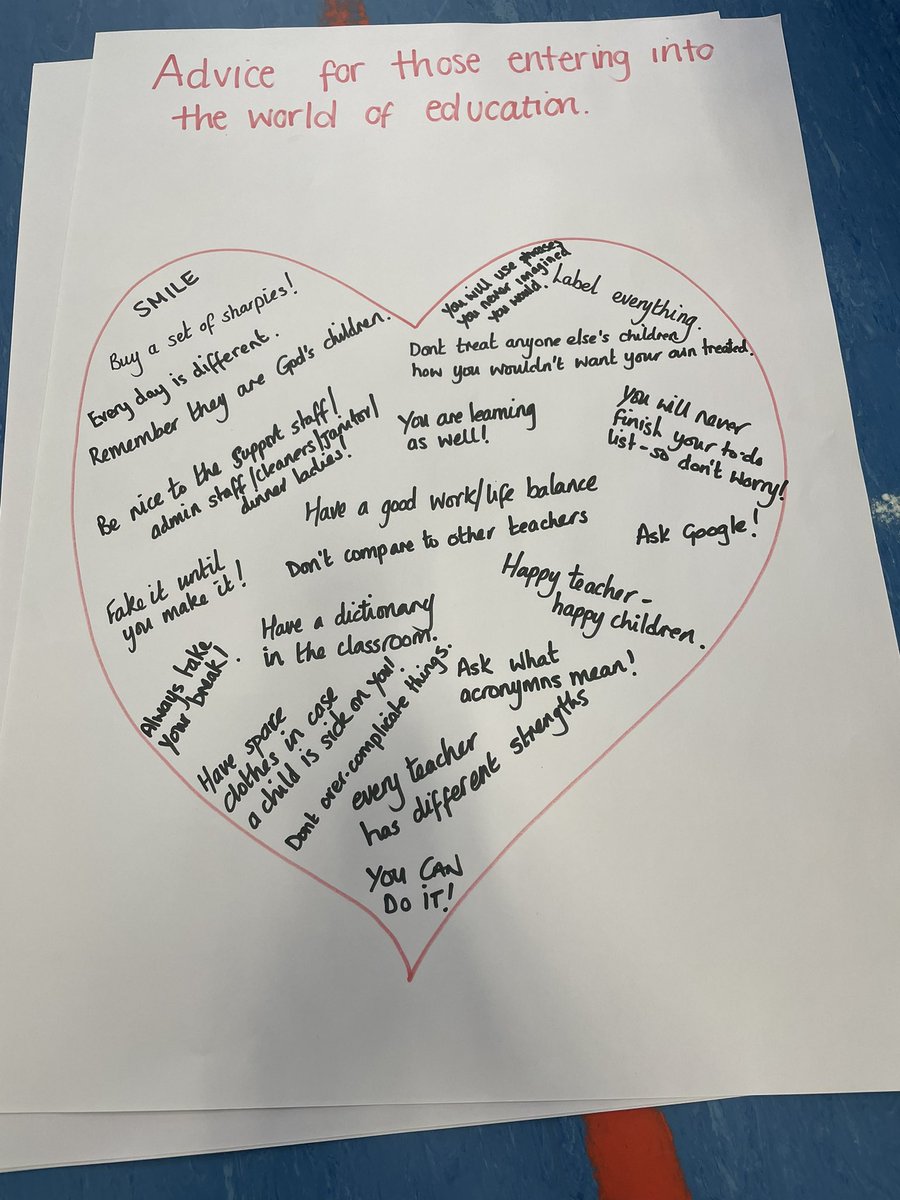 Advice for those entering into
the world of education.
SMILE
Buy a set of sharpies!
Every day is different.
Remember they are God's children.
Be nice to the support staff!
admin staff/cleaners/janitor/
dinner ladies!
You will use phrases
you never imagined
you would.
Label everything.
Dont treat anyone else's children
how you wouldn't want your own treated.
You are learning
as well!
you will never
finish your to-do
list-so don't worry!
Have a good work/life balance
Don't compare to other teachers
Ask Google!
Fake it until
you make it!
Happy teacher-
happy children.
Have a dictionary
in the classroom.
Always take
your break!
Ask what
acronymns mean!
Have spare
clothes in case
a child is sick on you!
Dont over-complicate things.
every teacher
has different strengths
YOU CAN
DO IT!